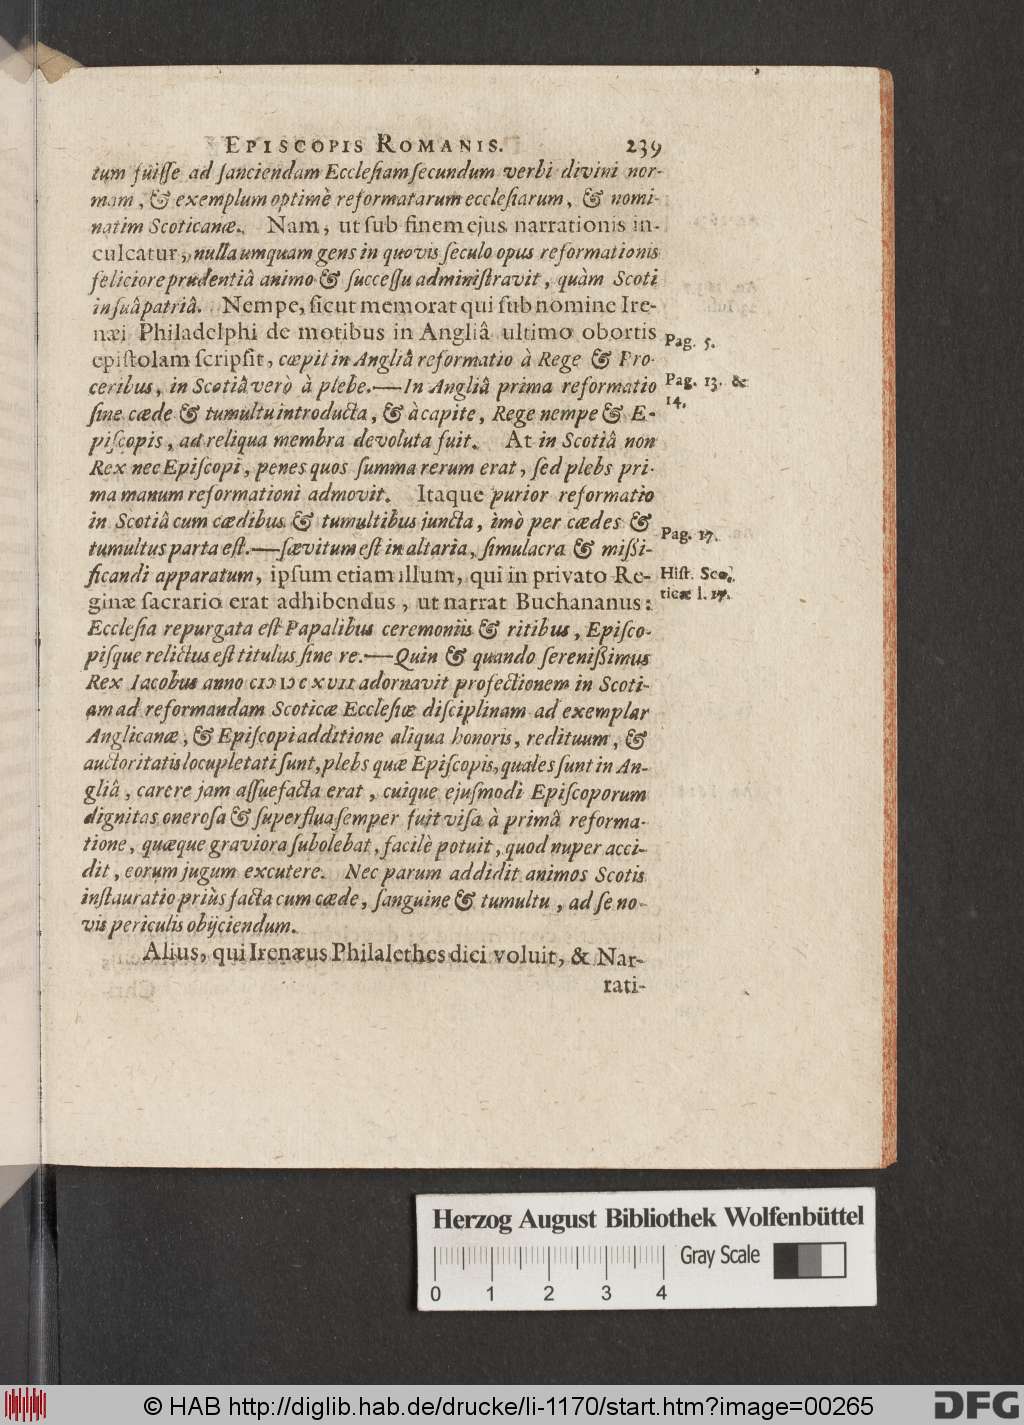 EPISCOPIS ROMANIS. 239
tum fuiſſe ad ſanciendam Eccleſiam ſecundum verbi divini nor-
mam, & exemplum optimè reformatarum eccleſiarum, & nomi-
natim Scoticanæ. Nam, ut ſub finem ejus narrationis in-
culcatur, nulla umquam gens in quovis ſeculo opus reformationis
feliciore prudentiâ animo & ſucceſſu adminiſtravit, quàm Scoti
in ſuâ patriâ. Nempe, ſicut memorat qui ſub nomine Ire-
næi Philadelphi de motibus in Angliâ ultimo obortis
epiſtolam ſcripſit, cœpit in Angliâ reformatio à Rege & Pro-
ceribus, in Scotiâ verò à plebe.—In Angliâ prima reformatio
ſine cæde & tumultu introducta, & à capite, Rege nempe & E-
piſcopis, ad reliqua membra devoluta fuit. At in Scotiâ non
Rex nec Epiſcopi, penes quos ſumma rerum erat, ſed plebs pri-
ma manum reformationi admovit. Itaque purior reformatio
in Scotiâ cum cædibus & tumultibus juncta, imò per cædes &
tumultus parta eſt.—ſævitum eſt in altaria, ſimulacra & miſſi-
ficandi apparatum, ipſum etiam illum, qui in privato Re-
ginæ ſacrario erat adhibendus, ut narrat Buchananus:
Eccleſia repurgata eſt Papalibus ceremoniis & ritibus, Epiſco-
piſque relictus eſt titulus ſine re.—Quin & quando ſereniſſimus
Rex Iacobus anno cıↄ ıↄ c xvıı adornavit profectionem in Scoti-
am ad reformandam Scoticæ Eccleſiæ diſciplinam ad exemplar
Anglicanæ, & Epiſcopi additione aliqua honoris, redituum, &
auctoritatis locupletati ſunt, plebs quæ Epiſcopis, quales ſunt in An-
gliâ, carere jam aſſuefacta erat, cuique ejuſmodi Epiſcoporum
dignitas oneroſa & ſuperflua ſemper fuit viſa à primâ reforma-
tione, quæque graviora ſubolebat, facilè potuit, quod nuper acci-
dit, eorum jugum excutere. Nec parum addidit animos Scotis
inſtauratio priùs facta cum cæde, ſanguine & tumultu, ad ſe no-
vis periculis obijciendum.
Alius, qui Irenæus Philalethes dici voluit, & Nar-
rati-
Pag. 5.
Pag. 13. &
14.
Pag. 17.
Hiſt. Sco-
ticæ l. 17.
Herzog August Bibliothek Wolfenbüttel
Gray Scale
0 1 2 3 4
© HAB http://diglib.hab.de/drucke/li-1170/start.htm?image=00265
DFG